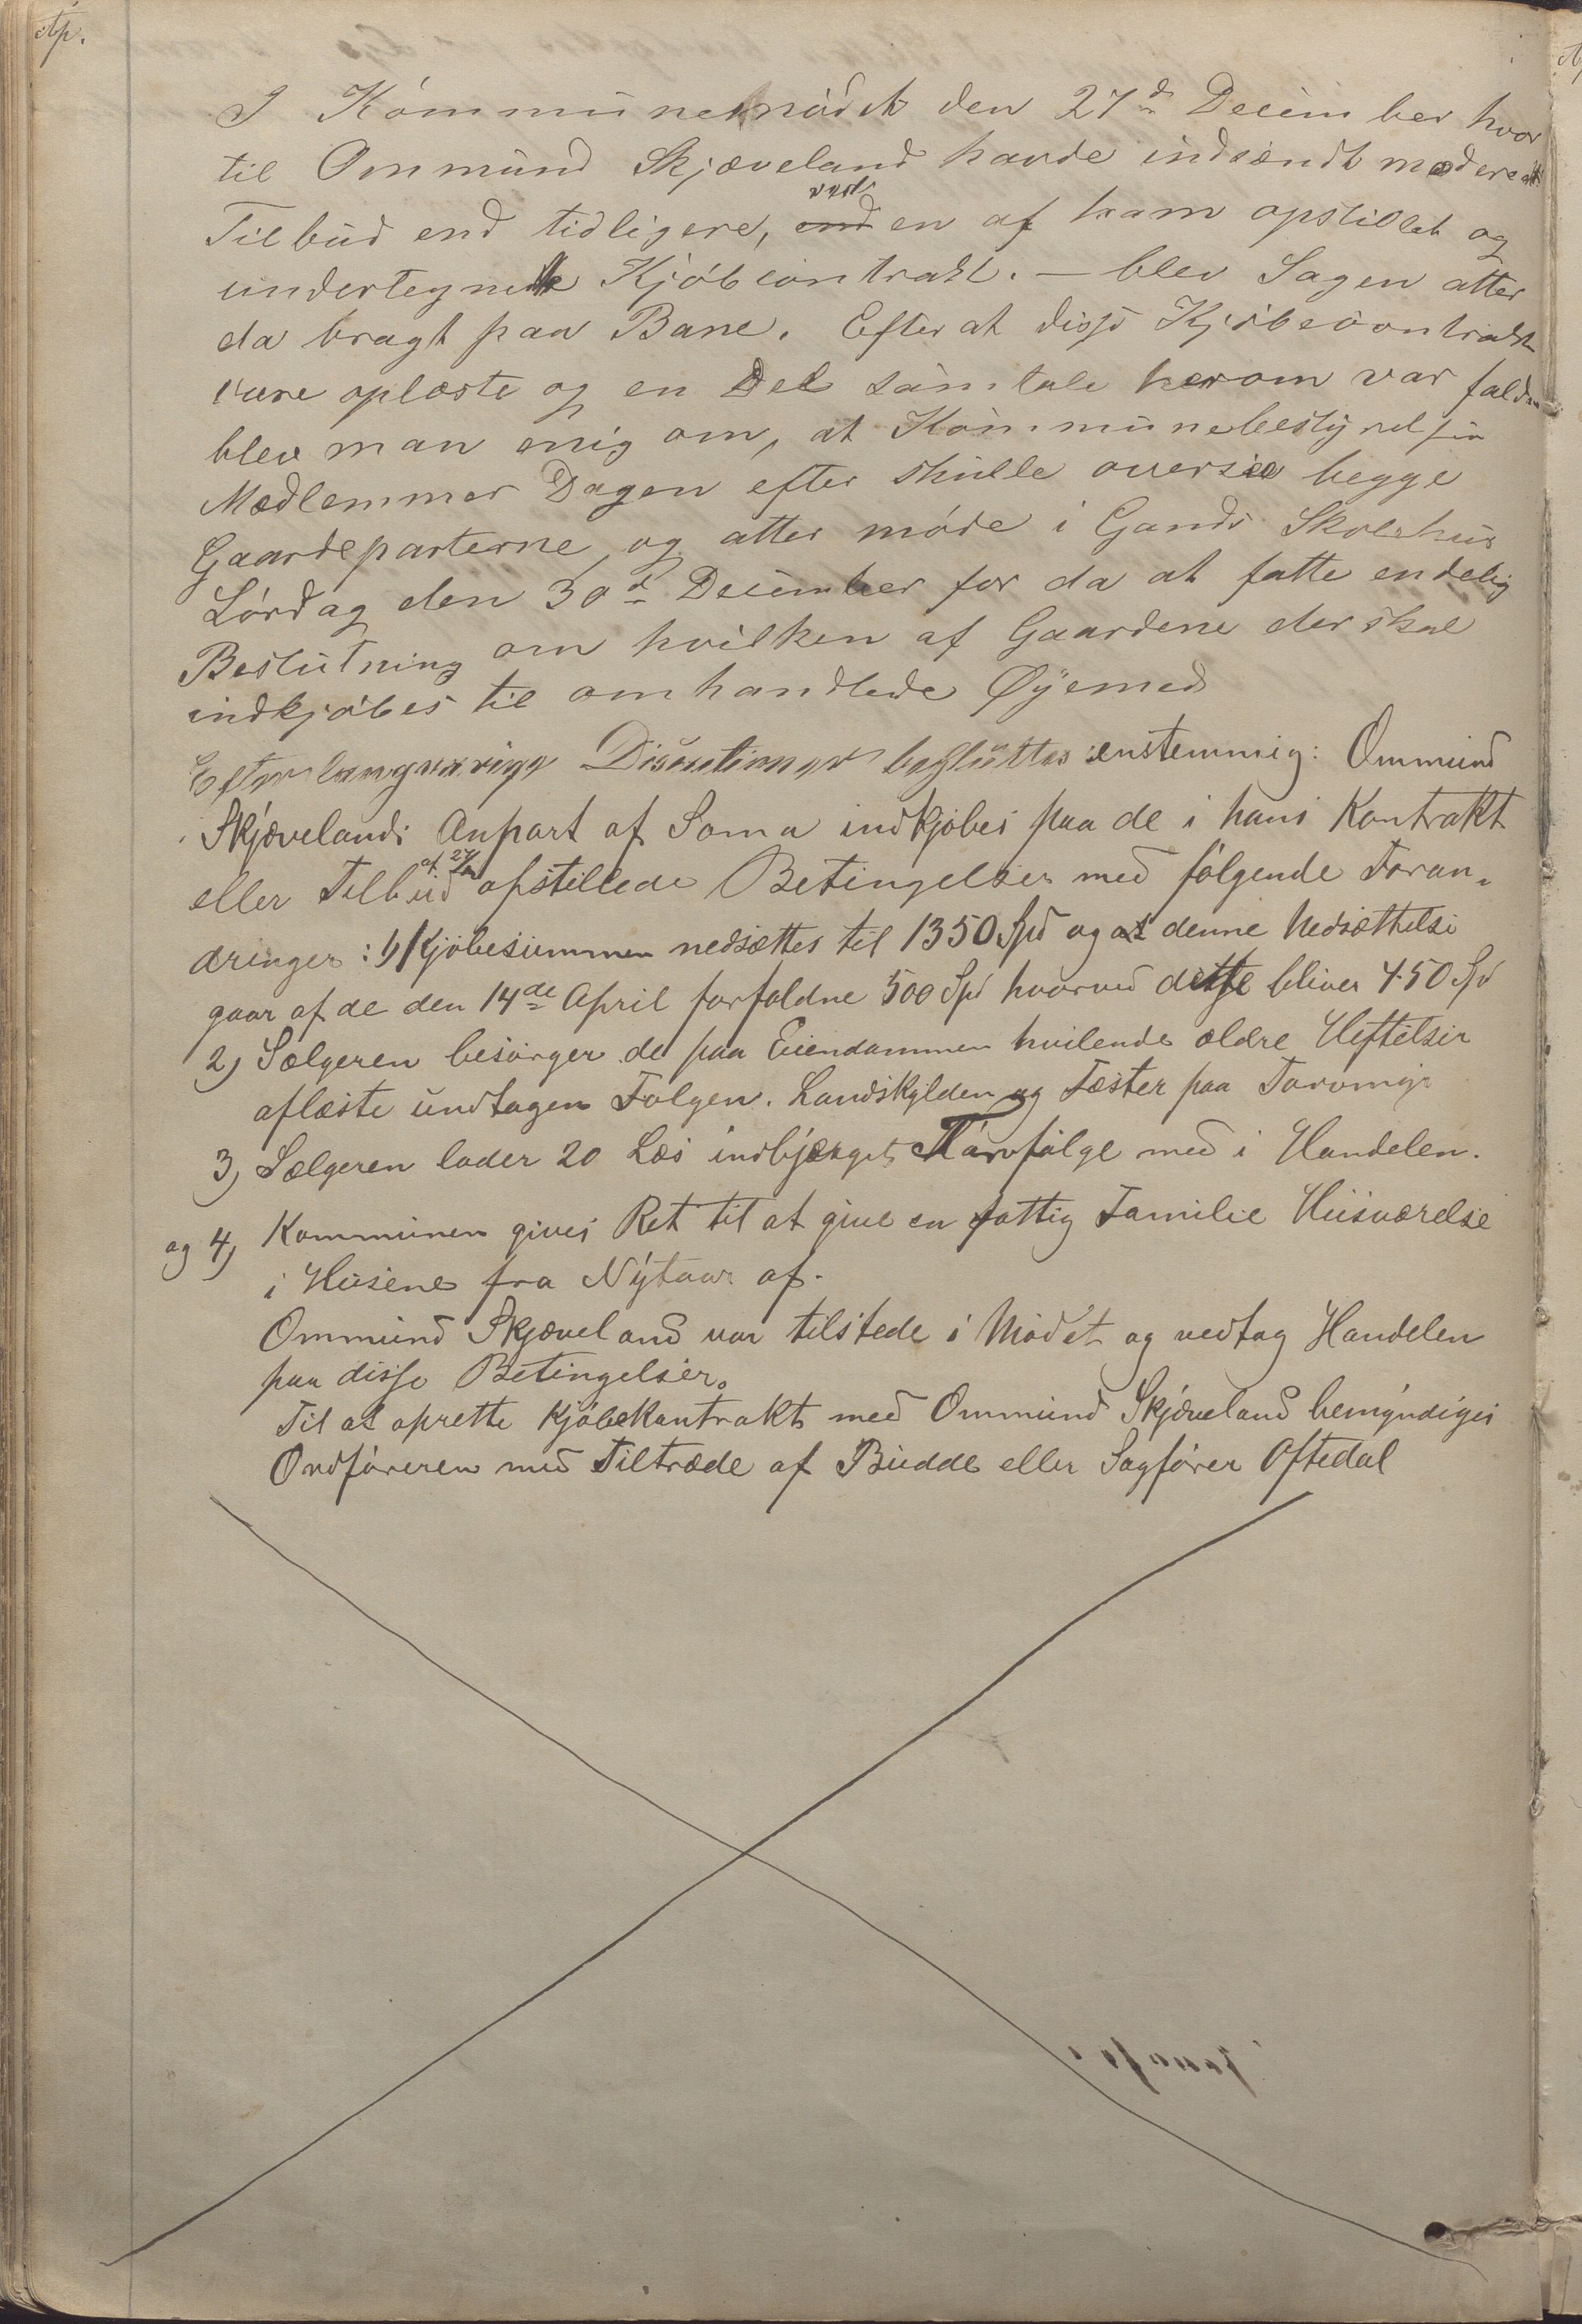 Ap.
I Kommunemødet den 27d December hvor
til Ommund Skjæveland havde indsendt moderat
Tilbud end tidligere, ved en af ham opstillet og
undertegnede Kjøbcontrakt. — blev Sagen atter
da bragt paa Bane. Efter at disse Kjøbecontrakt
vare oplæste og en Del samtale herom var falden
blev man enig om, at Kommunebestyrelsin
Medlemmer Dagen efter skulle oversee begge
Gaardeparterne, og atter møde i Gands Skolehus
Lørdag den 30d December for da at fatte endelig
Beslutning om hvilken af Gaardene der skal
indkjøbes til omhandlede Øyemed
Efter langvarige Discutioner besluttes enstemmig: Ommund
Skjævelands Anpart af Soma indkjøbes paa de i hans Kontrakt
eller Tilbud af 27/12 opstillede Betingelser med følgende Foran-
dringer: 1) Kjøbesummen nedsættes til 1350 Spd og at denne Nedsættelse
gaar af de den 14de April forfaldne 500 Spd hvorved disse bliver 450 Spd
2) Sælgeren besørger de paa Eiendommen hvilende ældre Heftelser
aflæste undtagen Følgen. Landskylden og Fæster paa Torvmyr
3) Sælgeren lader 20 Læs indbjærget Torv følge med i Handelen.
og 4) Kommunen gives Ret til at give en fattig Familie Huusværelse
i Husene fra Nytaar af.
Ommund Skjæveland var tilstede i Mødet og vedtog Handelen
paa disse Betingelser.
Til at oprette Kjøbekontrakt med Ommund Skjæveland bemyndiges
Ordføreren med Tiltræde af Budde eller Sagfører Oftedal